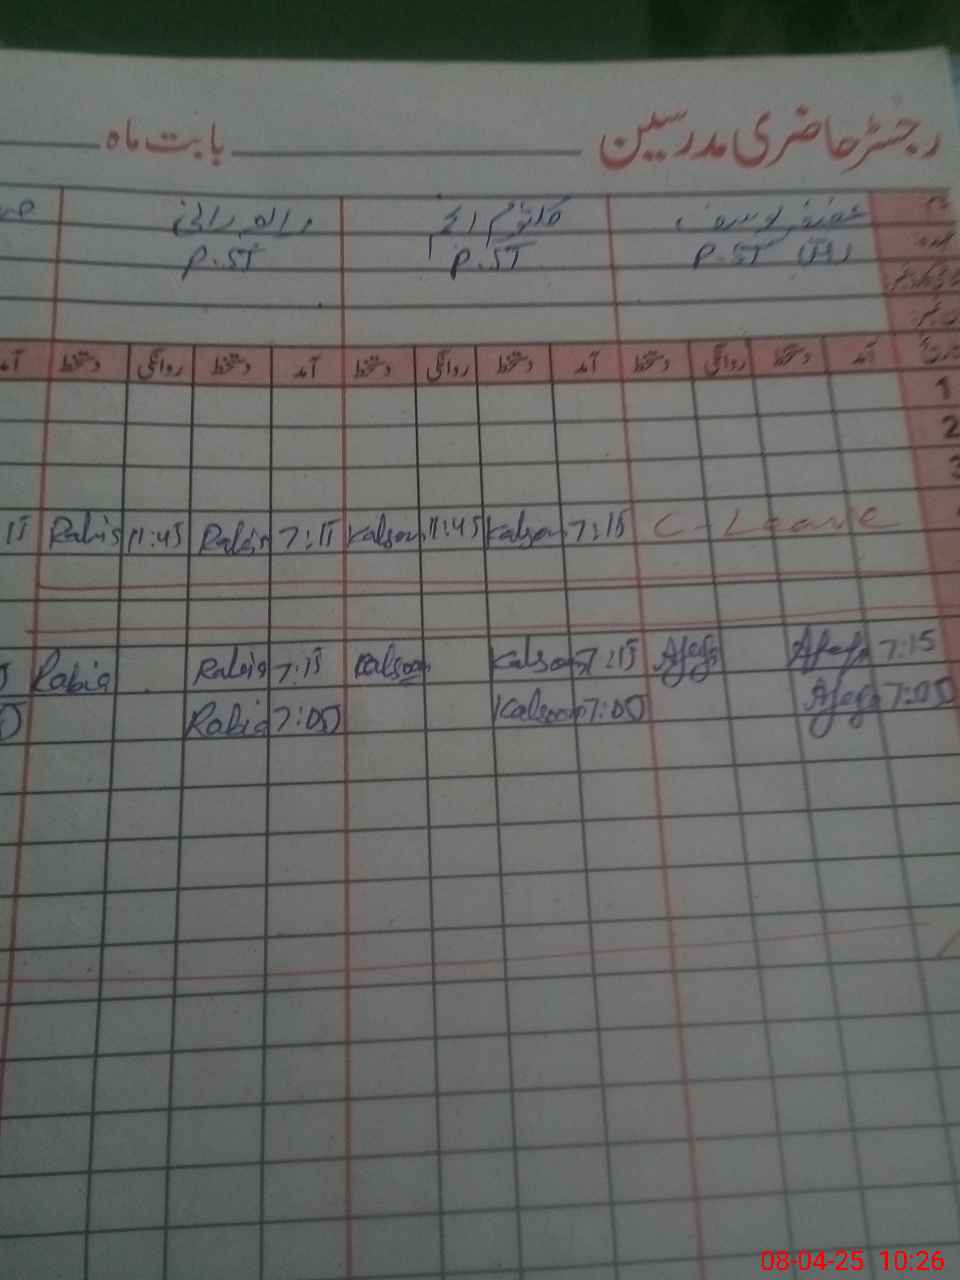 رجسٹر حاضری مدرسین بابت ماہ
کلثوم
P.ST P.ST P.ST
آمد دستخط روانگی دستخط آمد دستخط روانگی دستخط آمد دستخط روانگی دستخط
1
2
3
C-Leave 7:15 Kalsoom 11:45 Kalsoom 7:15 Rabia 11:45 Rabia
7:15 Afefa Afefa 7:15 Kalsoom Kalsoom 7:15 Rabia Rabia
7:05 Afefa 7:05 Kalsoom 7:05 Rabia
08-04-25 10:26